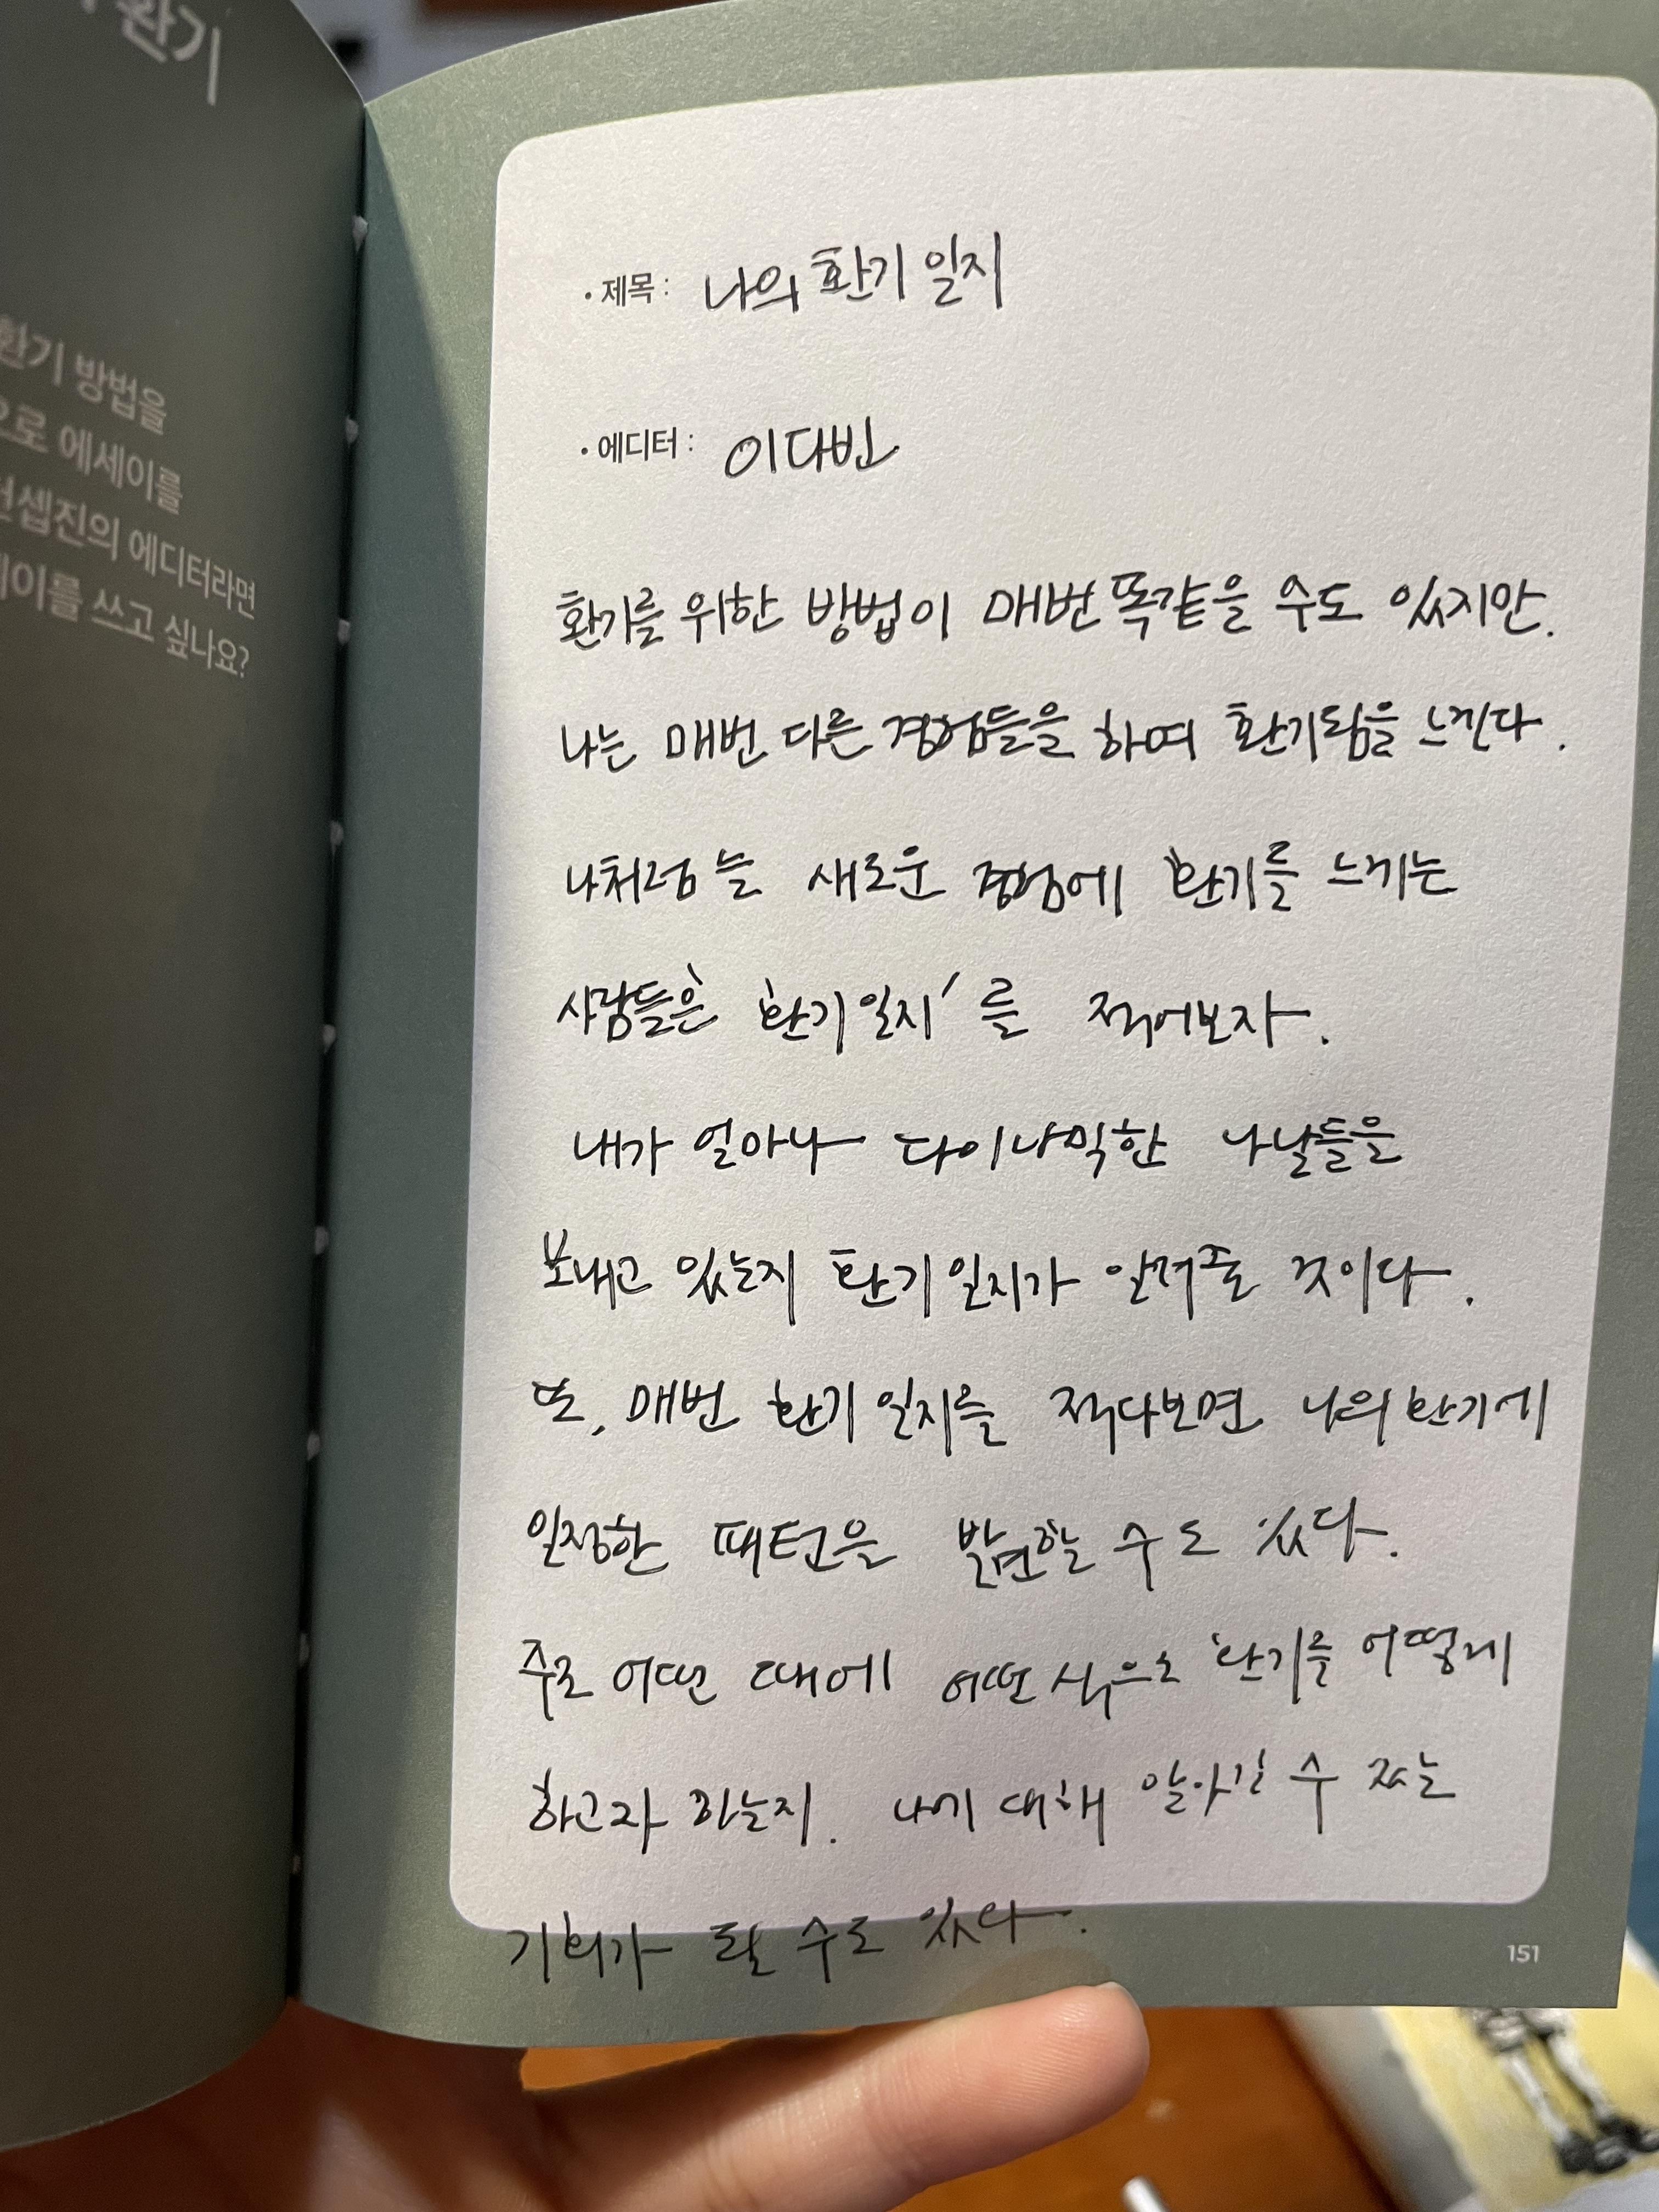 환기
환기 방법을
으로 에세이를
컨셉진의 에디터라면
에세이를 쓰고 싶나요?
• 제목 : 나의 환기 일지
• 에디터 : 이다빈
환기를 위한 방법이 매번 똑같을 수도 있지만.
나는 매번 다른 경험들을 하며 환기됨을 느낀다.
나처럼 늘 새로운 경험에 환기를 느끼는
사람들은 '환기일지'를 적어보자.
내가 얼마나 다이나믹한 나날들을
보내고 있는지 환기일지가 알려줄 것이다.
또, 매번 환기일지를 적다보면 나의 환기에
일정한 패턴을 발견할 수도 있다.
주로 어떤 때에 어떤 식으로 환기를 어떻게
하고자 하는지. 나에 대해 알아갈 수 있는
기회가 될 수도 있다.
151